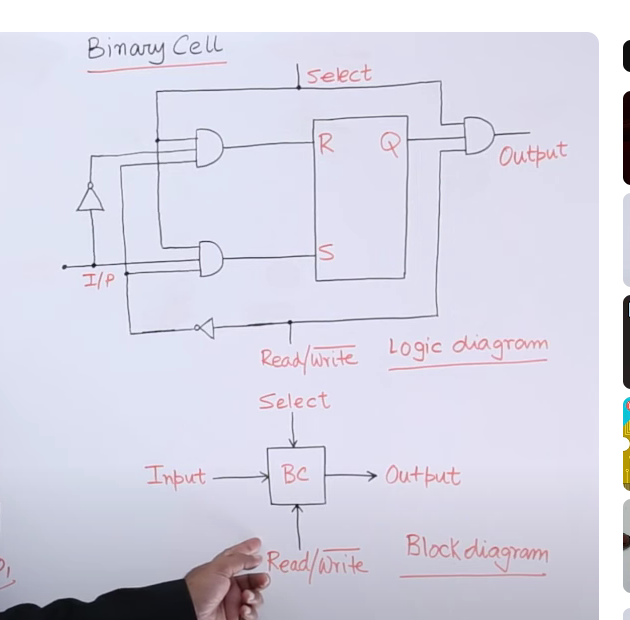 Binary Cell
Select
R
Q
Output
S
I/P
Read/Write
Logic diagram
Select
Input
BC
Output
Read/Write
Block diagram